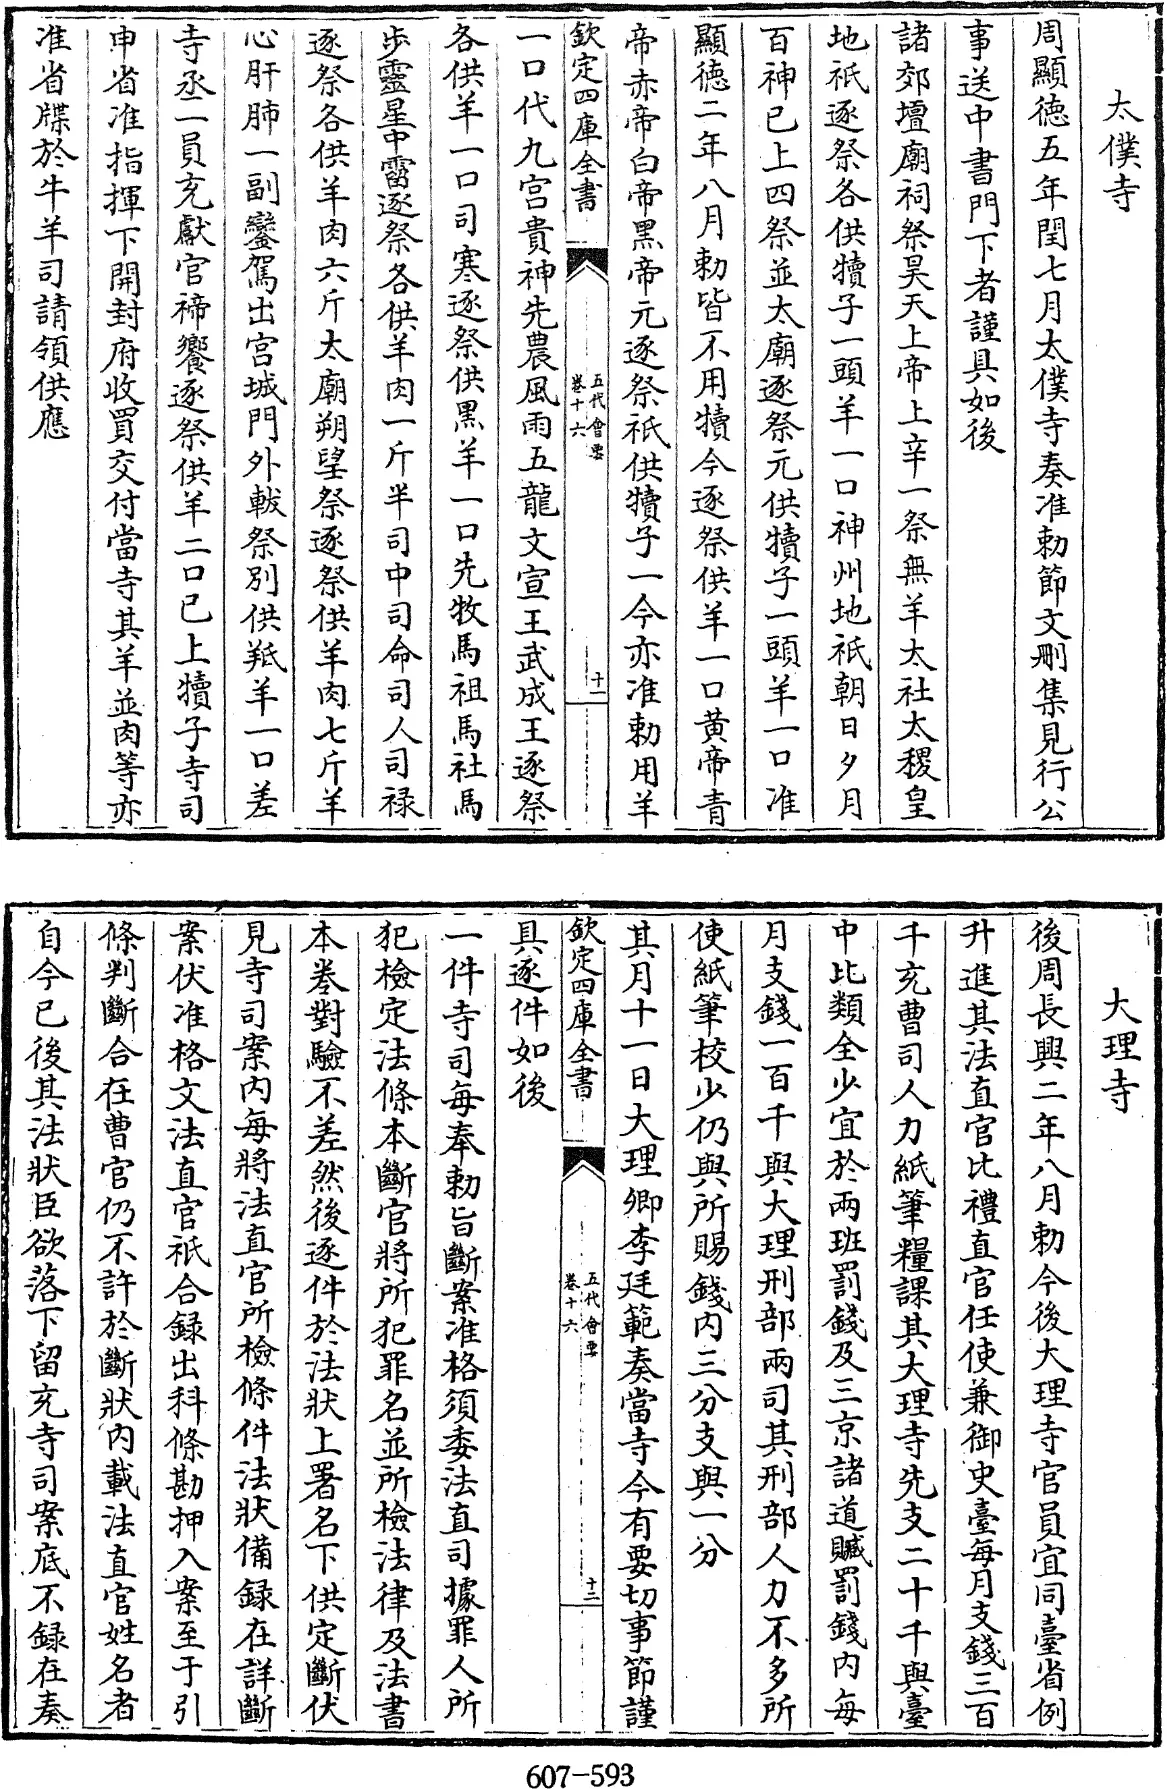 太僕寺
周顯徳五年閏七月太僕寺奏准勅節文刪集見行公
事送中書門下者謹具如後
諸郊壇廟祠祭昊天上帝上辛一祭無羊太社太稷皇
地祇逐祭各供犢子一頭羊一口神州地祇朝日夕月
百神已上四祭並太廟逐祭元供犢子一頭羊一口准
顯徳二年八月勅皆不用犢今逐祭供羊一口黄帝青
帝赤帝白帝黑帝元逐祭祇供犢子一今亦准勅用羊
欽定四庫全書
五代會要
卷十六
十一
一口代九宫貴神先農風雨五龍文宣王武成王逐祭
各供羊一口司寒逐祭供黑羊一口先牧馬祖馬社馬
歩靈星中霤逐祭各供羊肉一斤半司中司命司人司禄
逐祭各供羊肉六斤太廟朔望祭逐祭供羊肉七斤羊
心肝肺一副鑾駕出宫城門外軷祭別供羝羊一口差
寺丞一員充獻官禘饗逐祭供羊二口已上犢子寺司
申省准指揮下開封府收買交付當寺其羊並肉等亦
准省牒於牛羊司請領供應
大理寺
後周長興二年八月勅今後大理寺官員宜同臺省例
升進其法直官比禮直官任使兼御史臺每月支錢三百
千充曹司人力紙筆糧課其大理寺先支二十千與臺
中比類全少宜於兩班罰錢及三京諸道贓罰錢内每
月支錢一百千與大理刑部兩司其刑部人力不多所
使紙筆校少仍與所賜錢内三分支與一分
其月十一日大理卿李廷範奏當寺今有要切事節謹
欽定四庫全書
五代會要
卷十六
十二
具逐件如後
一件寺司每奉勅旨斷案准格須委法直司據罪人所
犯檢定法條本斷官將所犯罪名並所檢法律及法書
本卷對驗不差然後逐件於法狀上署名下供定斷伏
見寺司案内每將法直官所檢條件法狀備録在詳斷
案伏准格文法直官祇合録出科條勘押入案至于引
條判斷合在曹官仍不許於斷狀内載法直官姓名者
自今已後其法狀臣欲落下留充寺司案底不録在奏
607-593